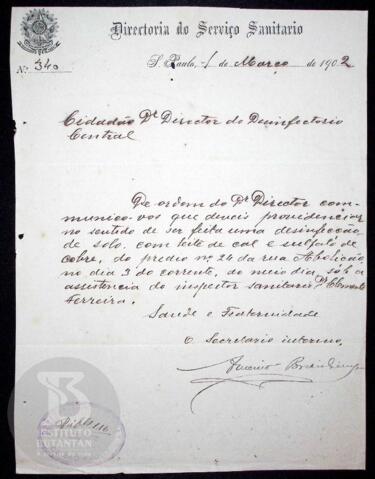 Directoria do Serviço Sanitario
Nº 340
S. Paulo, 1 de Março de 1902
Cidadão Dr Director do Desinfectorio
Central
De ordem do Dr Director com-
munico-vos que deveis providenciar
no sentido de ser feita uma desinfecção
de solo, com leite de cal e sulfato de
cobre, do predio nº 24 da rua Abolição
no dia 3 do corrente, ao meio dia, sob a
assistencia do inspector sanitario Dr Clemente
Ferreira.
Saude e Fraternidade
O Secretario interino,
INSTITUTO
BUTANTAN
A serviço da vida